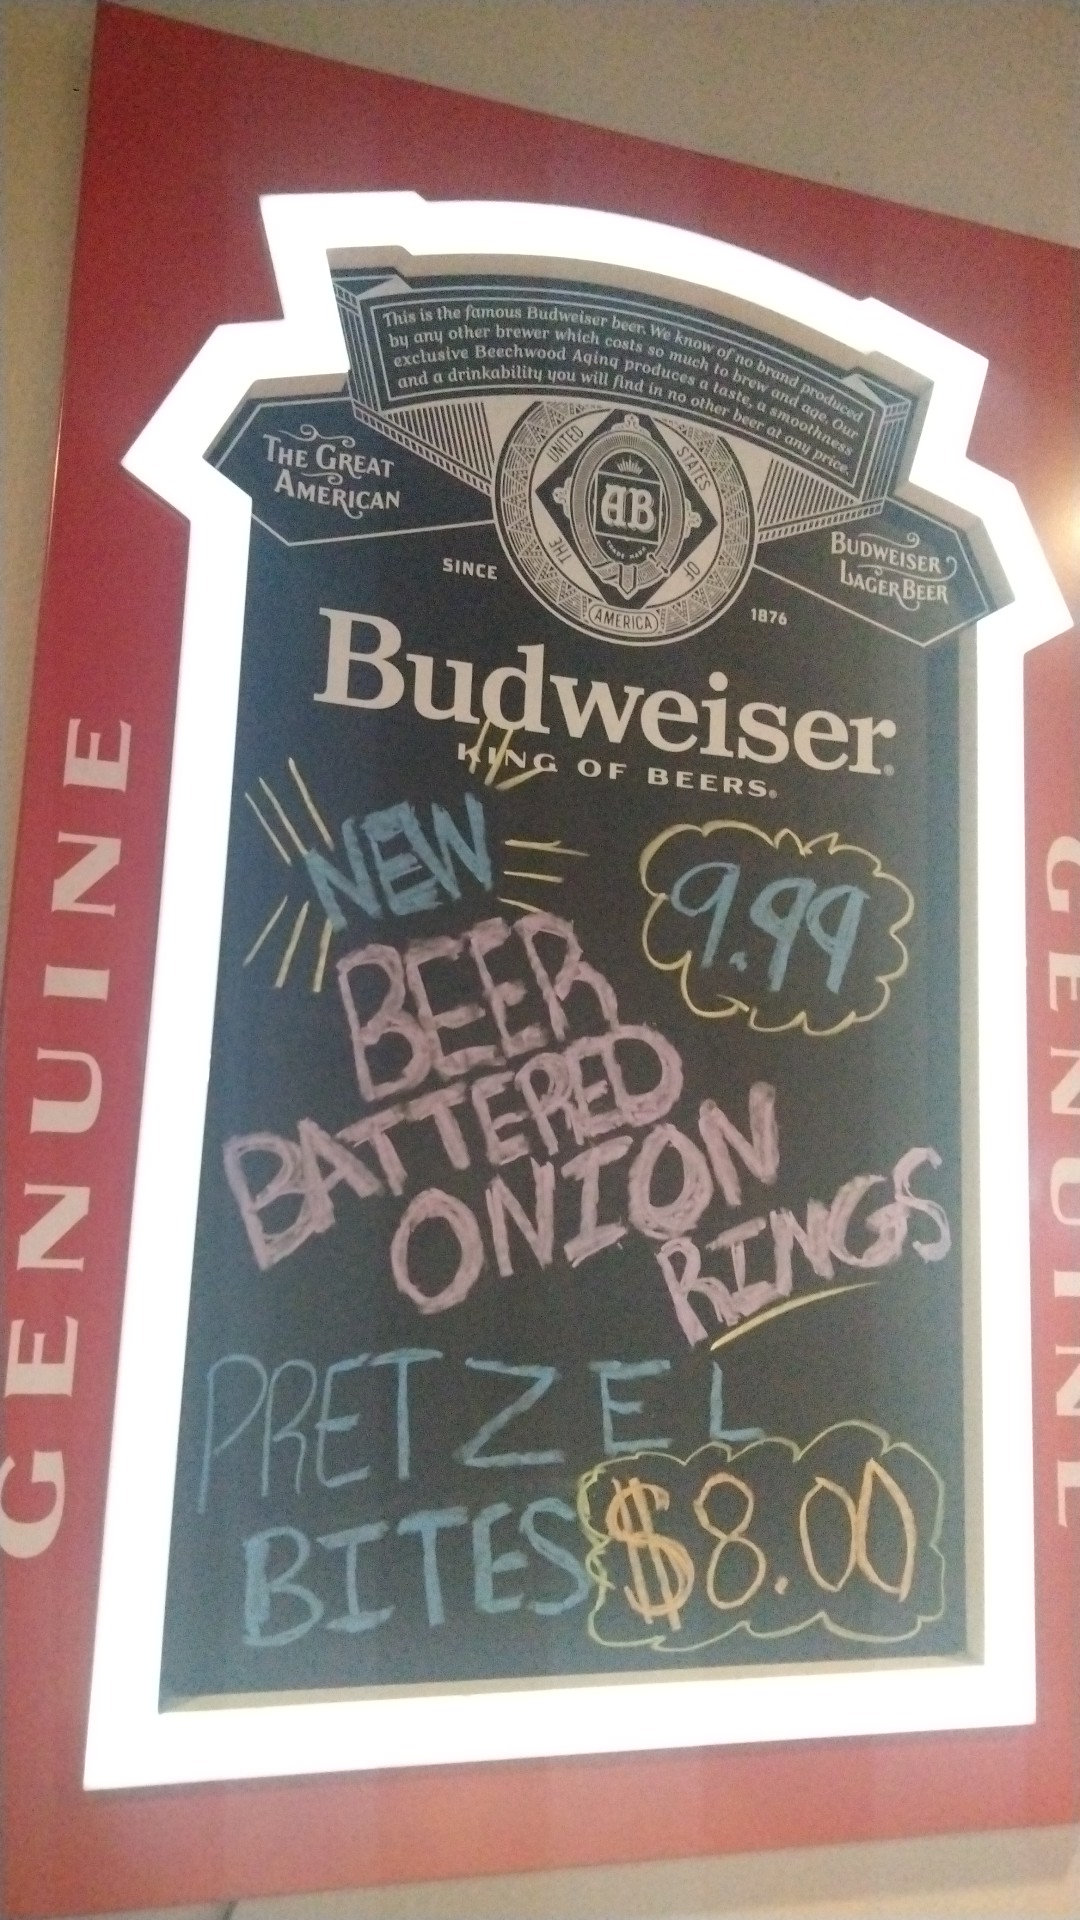 This is the famous Budweiser beer. We know of no brand produced
by any other brewer which costs so much to brew and age. Our
exclusive Beechwood Aging produces a taste, a smoothness
and a drinkability you will find in no other beer at any price.
THE GREAT
AMERICAN
THE UNITED STATES OF AMERICA
AB
TRADE MARK
BUDWEISER
LAGER BEER
SINCE
1876
Budweiser®
KING OF BEERS®
NEW
9.99
BEER
BATTERED
ONION
RINGS
PRETZEL
BITES $8.00
GENUINE
GENUINE